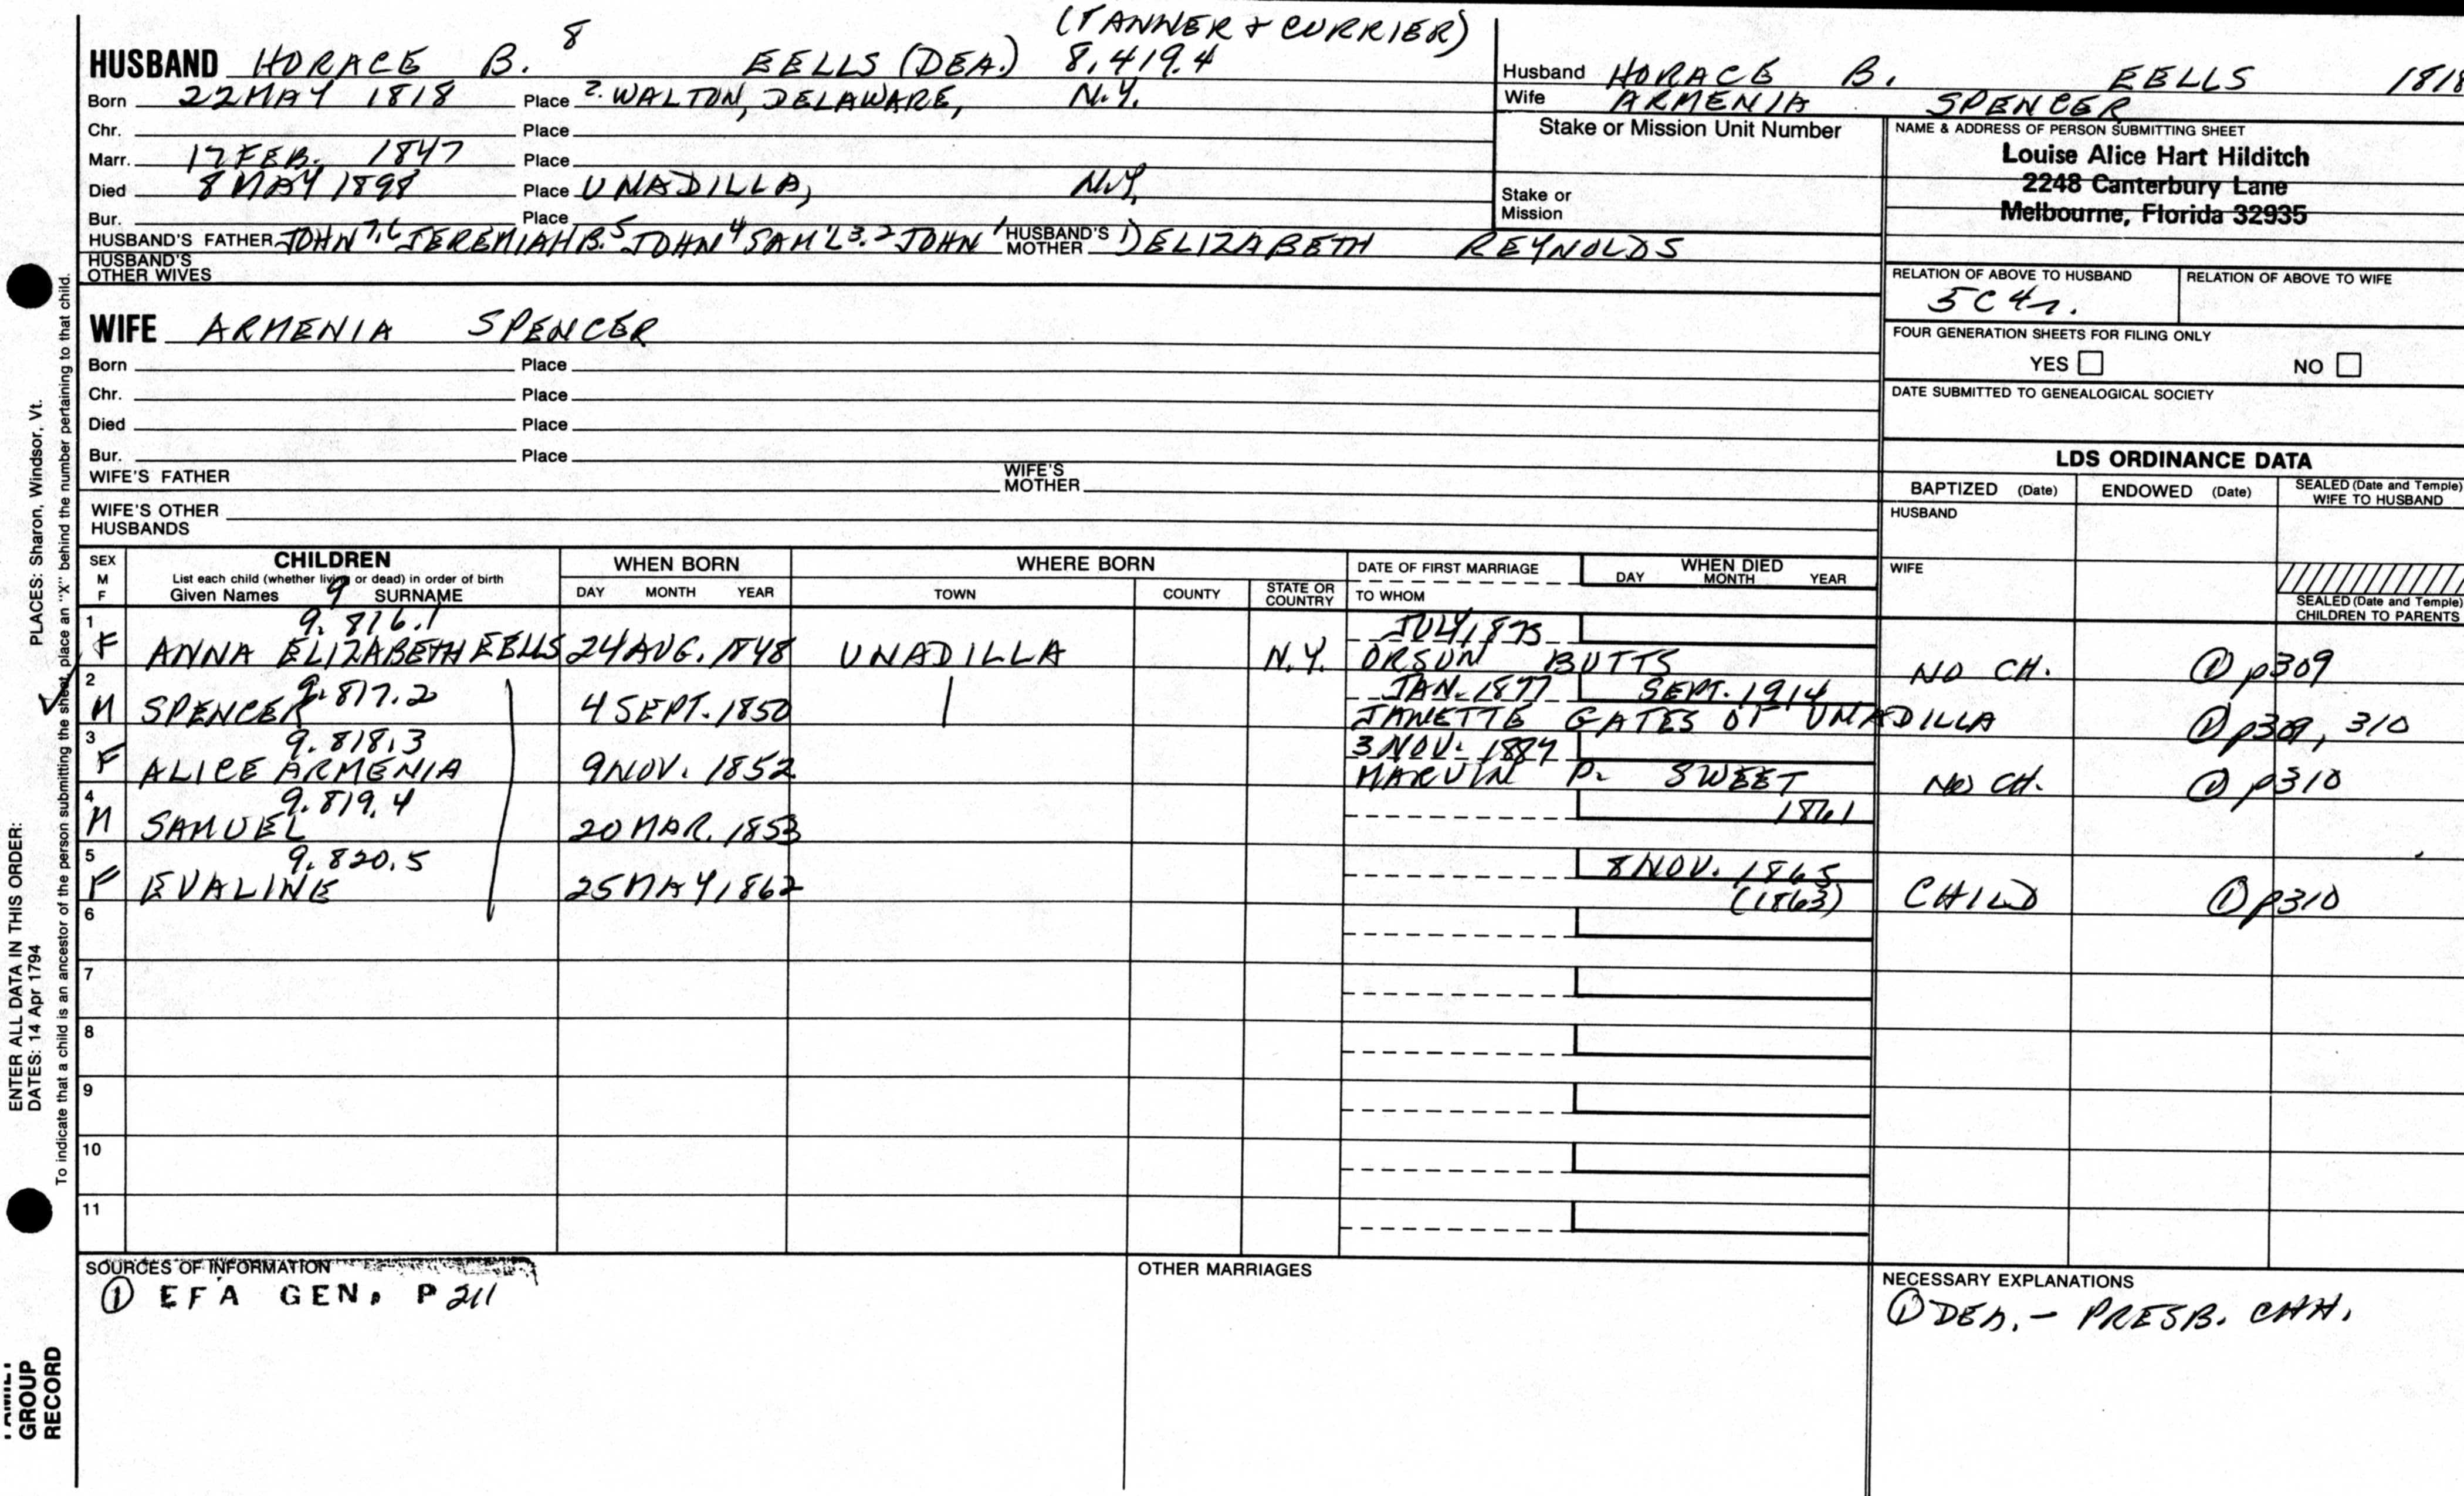 (TANNER & CURRIER)
HUSBAND HORACE B. 8 EELLS (DEA.) 8.419.4
Born 22 MAY 1818 Place ?. WALTON, DELAWARE, N.Y.
Chr. Place
Marr. 17 FEB. 1847 Place
Died 8 MAY 1898 Place UNADILLA, N.Y.
Bur. Place
HUSBAND'S FATHER JOHN 7,6 JEREMIAH B. 5 JOHN 4 SAM'L 3.2 JOHN 1 HUSBAND'S MOTHER 1) ELIZABETH REYNOLDS
HUSBAND'S OTHER WIVES
Husband HORACE B. EELLS 1818
Wife ARMENIA SPENCER
Stake or Mission Unit Number
Stake or Mission
NAME & ADDRESS OF PERSON SUBMITTING SHEET
Louise Alice Hart Hilditch
2248 Canterbury Lane
Melbourne, Florida 32935
RELATION OF ABOVE TO HUSBAND RELATION OF ABOVE TO WIFE
5C4r.
FOUR GENERATION SHEETS FOR FILING ONLY
YES NO
DATE SUBMITTED TO GENEALOGICAL SOCIETY
WIFE ARMENIA SPENCER
Born Place
Chr. Place
Died Place
Bur. Place
WIFE'S FATHER WIFE'S MOTHER
WIFE'S OTHER HUSBANDS
LDS ORDINANCE DATA
BAPTIZED (Date) ENDOWED (Date) SEALED (Date and Temple) WIFE TO HUSBAND
HUSBAND
WIFE
SEALED (Date and Temple) CHILDREN TO PARENTS
SEX M F
CHILDREN
List each child (whether living or dead) in order of birth
Given Names 9 SURNAME
WHEN BORN
DAY MONTH YEAR
WHERE BORN
TOWN COUNTY STATE OR COUNTRY
DATE OF FIRST MARRIAGE
TO WHOM
WHEN DIED
DAY MONTH YEAR
1 9.816.1 JULY 1875
F ANNA ELIZABETH EELLS 24 AUG. 1848 UNADILLA N.Y. ORSON BUTTS NO CH. ① p309
2 9.817.2 JAN. 1877 SEPT. 1914
M SPENCER 4 SEPT. 1850 JANETTE GATES OF UNADILLA ① p309, 310
3 9.818.3 3 NOV. 1884
F ALICE ARMENIA 9 NOV. 1852 MARVIN P. SWEET NO CH. ① p310
4 9.819.4 1861
M SAMUEL 20 MAR. 1853
5 9.820.5 8 NOV. 1865
F EVALINE 25 MAY 1862 (1863) CHILD ① p310
6
7
8
9
10
11
SOURCES OF INFORMATION
① EFA GEN. P 211
OTHER MARRIAGES
NECESSARY EXPLANATIONS
① DEA. - PRESB. CHH.
ENTER ALL DATA IN THIS ORDER:
DATES: 14 Apr 1794
PLACES: Sharon, Windsor, Vt.
To indicate that a child is an ancestor of the person submitting the sheet, place an "X" behind the number pertaining to that child.
FAMILY
GROUP
RECORD